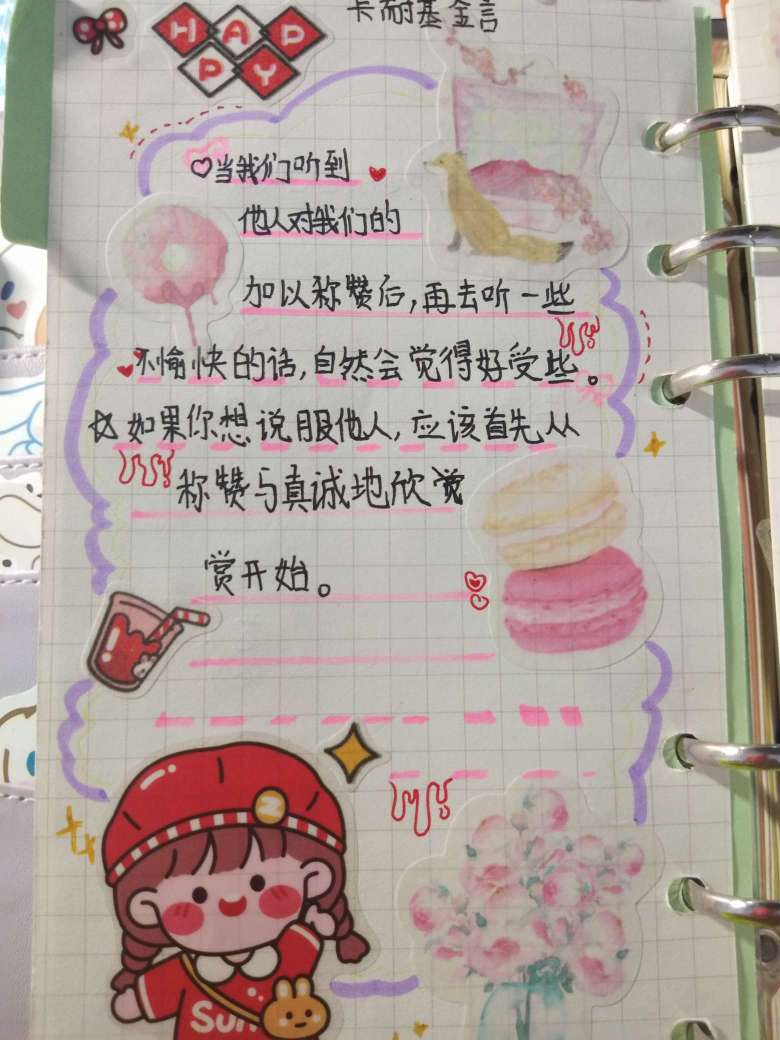 卡耐基金言
HAP
PY
当我们听到
他人对我们的
加以称赞后,再去听一些
不愉快的话,自然会觉得好受些。
☆如果你想说服他人,应该首先从
称赞与真诚地欣觉
赏开始。
Sun